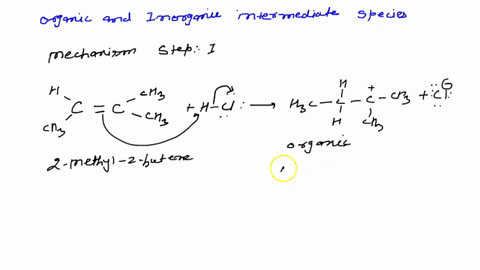 organic and Inorganic intermediate species
mechanism Step: I
H CH3 H
C = C + H-Cl: → H3C - C - C+ - CH3 + :Cl:⊖
CH3 CH3 H CH3
2-methyl-2-butene organic